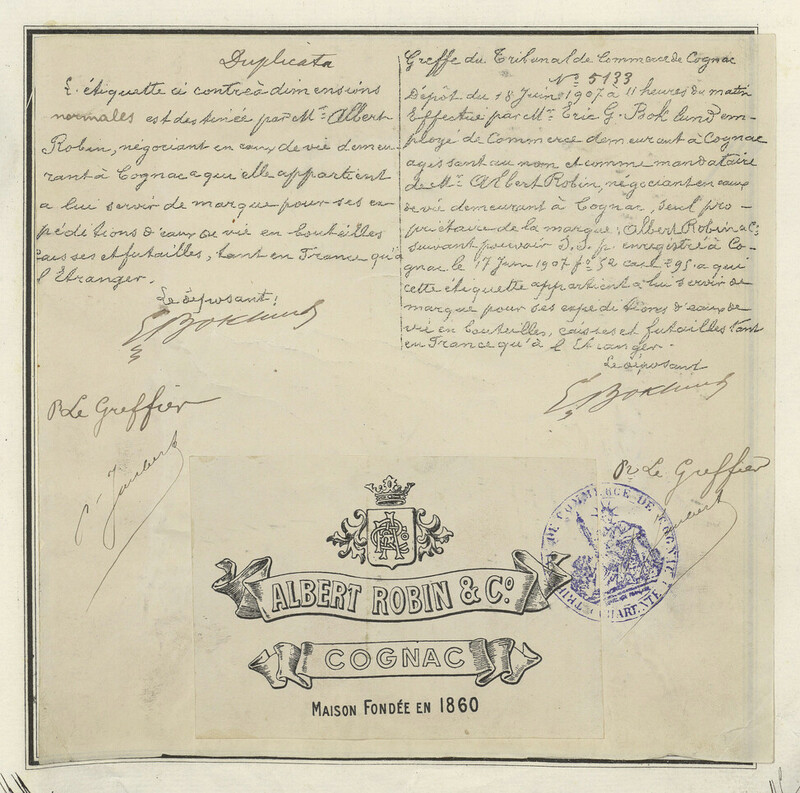 Duplicata
L'étiquette ci contre à dimensions
normales est destinée par Mr. Albert
Robin, négociant en eaux de vie demeu
rant à Cognac a qui elle appartient
a lui servir de marque pour ses ex
péditions d'eaux de vie en bouteilles
caisses et futailles, tant en France qu'à
l'Etranger.
Le déposant:
E. Boklund
P. Le Greffier
Greffe du Tribunal de Commerce de Cognac
No 5133
Dépôt du 18 Juin 1907 à 11 heures du matin
Effectué par Mr. Eric G. Boklund em-
ployé de Commerce demeurant à Cognac
agissant au nom et comme mandataire
de Mr. Albert Robin, négociant en eaux
de vie demeurant à Cognac, seul pro-
priétaire de la marque: Albert Robin & Co
suivant pouvoir S.S.p. enregistré à Co-
gnac le 17 Juin 1907 fo 52 case 295. a qui
cette étiquette appartient à lui servir de
marque pour ses expéditions d'eaux de
vie en bouteilles, caisses et futailles tant
en France qu'à l'Etranger.
Le déposant
E. Boklund
P. Le Greffier
ALBERT ROBIN & Co.
COGNAC
MAISON FONDÉE EN 1860
DE COMMERCE DE COGNAC
CHARENTE